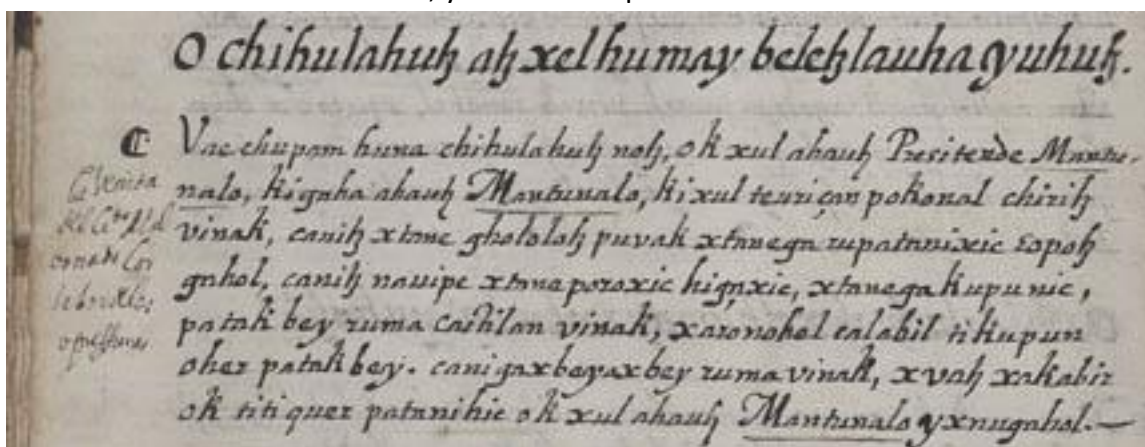 O chihulahuꜩ aꜩ xel humay beleꜩ lauha yuhuꜩ.
Vae chupam huna chihulahuꜩ noꜩ, ok xul ahauꜩ Presitende Mantu-
nalo, ki gaha ahauꜩ Mantunalo, ki xul teuriçan pokonal chiriꜩ
vinak, caniꜩ xtane ghololoꜩ puvak xtanega rupatanixic Ɛopoꜩ
gahol, caniꜩ navipe xtane poroxic higaxic, xtanega kupunic,
patak bey ruma castilan vinak, xaronohel calabil tikupun
oher patak bey. canigaxbeyaxbey ruma vinak, xvaꜩ xakabir
ok titiquer patanihic ok xul ahauꜩ Mantunalo yxnugahol.—